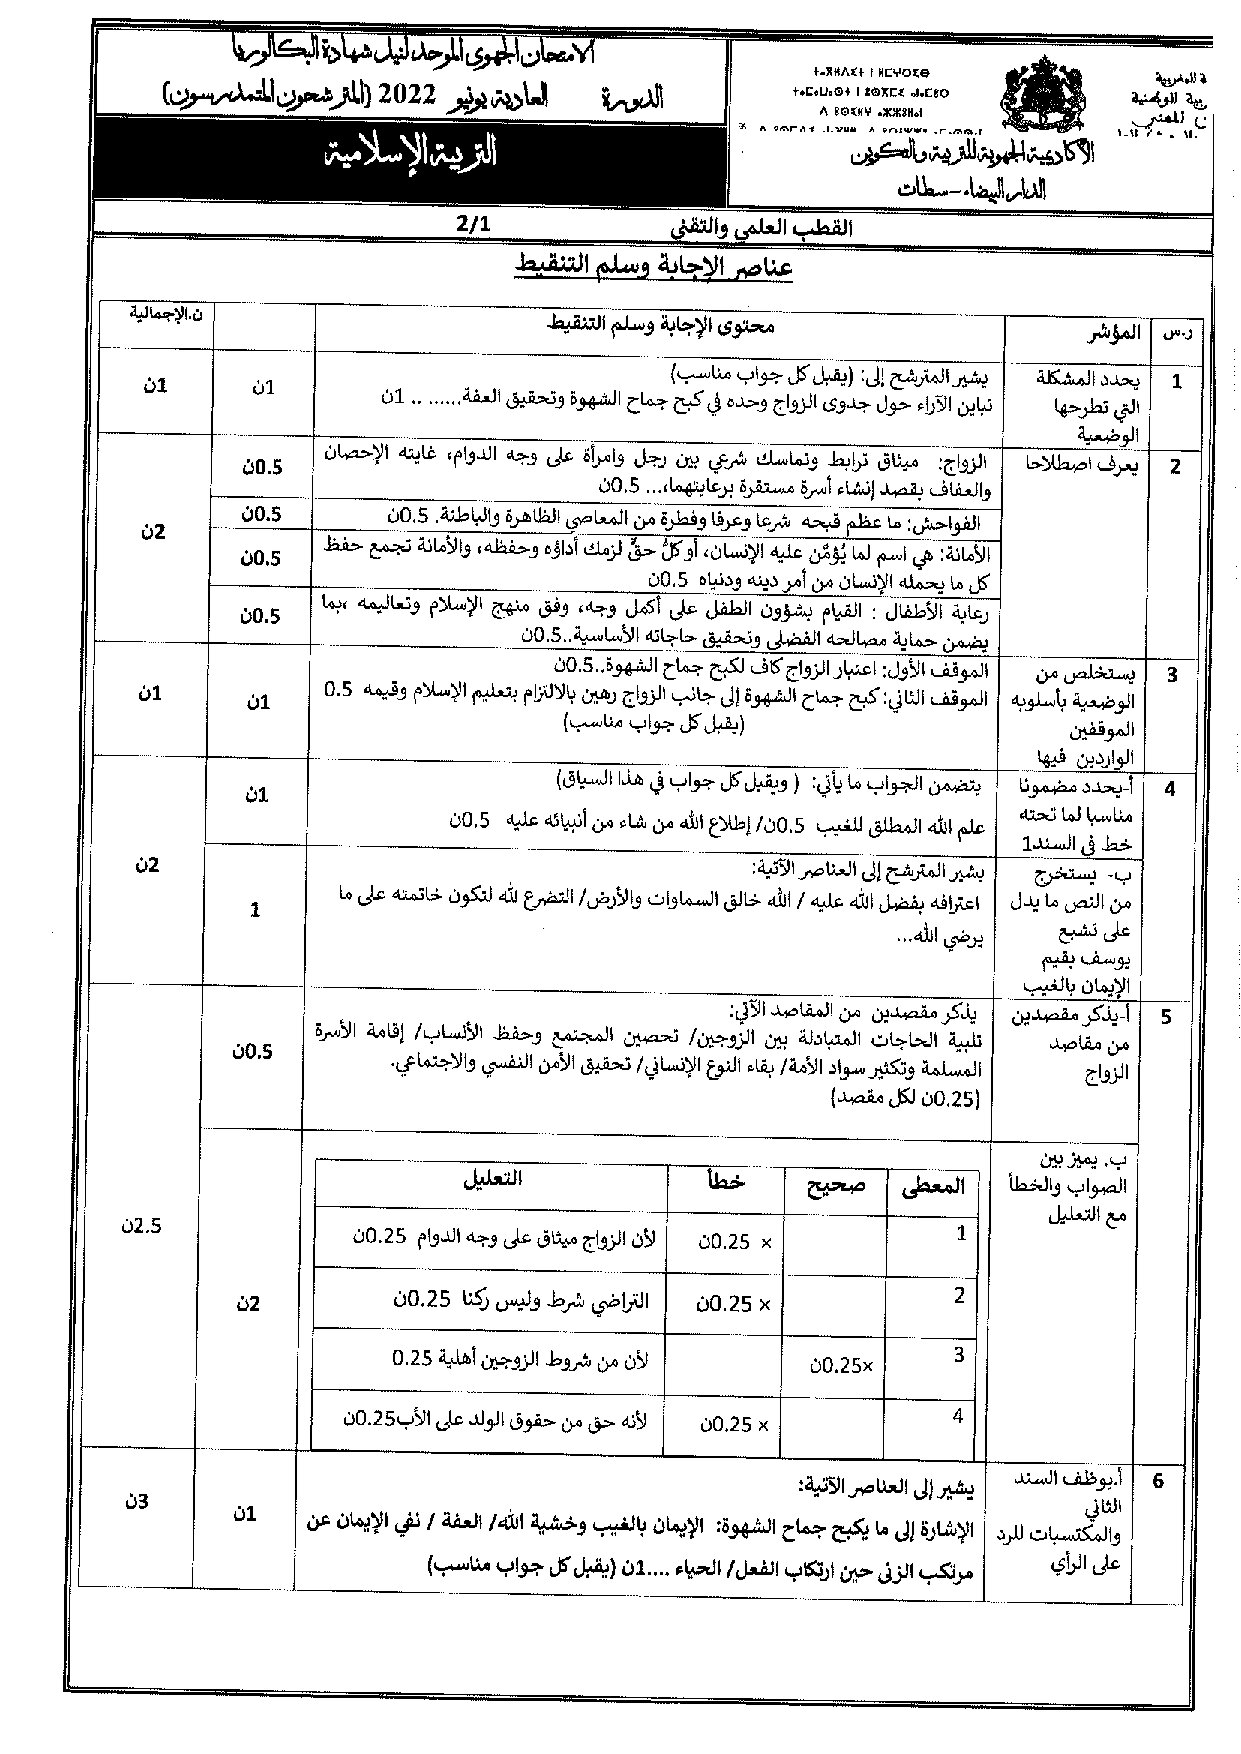 الامتحان الجهوي الموحد لنيل شهادة البكالوريا
الدورة العادية يونيو 2022 (المترشحون المتمدرسون)
التربية الإسلامية
الأكاديمية الجهوية للتربية والتكوين
الدار البيضاء-سطات
القطب العلمي والتقني 2/1
عناصر الإجابة وسلم التنقيط
ر.س المؤشر محتوى الإجابة وسلم التنقيط ن.الإجمالية
1 يحدد المشكلة
التي تطرحها
الوضعية
يشير المترشح إلى: (يقبل كل جواب مناسب)
تباين الآراء حول جدوى الزواج وحده في كبح جماح الشهوة وتحقيق العفة...... .. 1ن
1ن 1ن
2 يعرف اصطلاحا
الزواج: ميثاق ترابط وتماسك شرعي بين رجل وامرأة على وجه الدوام، غايته الإحصان
والعفاف بقصد إنشاء أسرة مستقرة برعايتهما،... 0.5ن
0.5ن
الفواحش: ما عظم قبحه شرعا وعرفا وفطرة من المعاصي الظاهرة والباطنة. 0.5ن
0.5ن
الأمانة: هي اسم لما يُؤمَّن عليه الإنسان، أو كلُّ حقٍّ لزمك أداؤه وحفظه، والأمانة تجمع حفظ
كل ما يحمله الإنسان من أمر دينه ودنياه 0.5ن
0.5ن
رعاية الأطفال : القيام بشؤون الطفل على أكمل وجه، وفق منهج الإسلام وتعاليمه ،بما
يضمن حماية مصالحه الفضلى وتحقيق حاجاته الأساسية..0.5ن
0.5ن
2ن
3 يستخلص من
الوضعية بأسلوبه
الموقفين
الواردين فيها
الموقف الأول: اعتبار الزواج كاف لكبح جماح الشهوة..0.5ن
الموقف الثاني: كبح جماح الشهوة إلى جانب الزواج رهين بالالتزام بتعليم الإسلام وقيمه 0.5
(يقبل كل جواب مناسب)
1ن 1ن
4 أ-يحدد مضمونا
مناسبا لما تحته
خط في السند1
يتضمن الجواب ما يأتي: ( ويقبل كل جواب في هذا السياق)
علم الله المطلق للغيب 0.5ن/ إطلاع الله من شاء من أنبيائه عليه 0.5ن
1ن
ب- يستخرج
من النص ما يدل
على تشبع
يوسف بقيم
الإيمان بالغيب
يشير المترشح إلى العناصر الآتية:
اعترافه بفضل الله عليه / الله خالق السماوات والأرض/ التضرع لله لتكون خاتمته على ما
يرضي الله...
1
2ن
5 أ-يذكر مقصدين
من مقاصد
الزواج
يذكر مقصدين من المقاصد الآتي:
تلبية الحاجات المتبادلة بين الزوجين/ تحصين المجتمع وحفظ الأنساب/ إقامة الأسرة
المسلمة وتكثير سواد الأمة/ بقاء النوع الإنساني/ تحقيق الأمن النفسي والاجتماعي.
(0.25ن لكل مقصد)
0.5ن
ب. يميز بين
الصواب والخطأ
مع التعليل
المعطى صحيح خطأ التعليل
1 × 0.25ن لأن الزواج ميثاق على وجه الدوام 0.25ن
2 × 0.25ن التراضي شرط وليس ركنا 0.25ن
3 ×0.25ن لأن من شروط الزوجين أهلية 0.25
4 × 0.25ن لأنه حق من حقوق الولد على الأب0.25ن
2ن
2.5ن
6 أ.يوظف السند
الثاني
والمكتسبات للرد
على الرأي
يشير إلى العناصر الآتية:
الإشارة إلى ما يكبح جماح الشهوة: الإيمان بالغيب وخشية الله/ العفة / نفي الإيمان عن
مرتكب الزنى حين ارتكاب الفعل/ الحياء ....1ن (يقبل كل جواب مناسب)
1ن 3ن